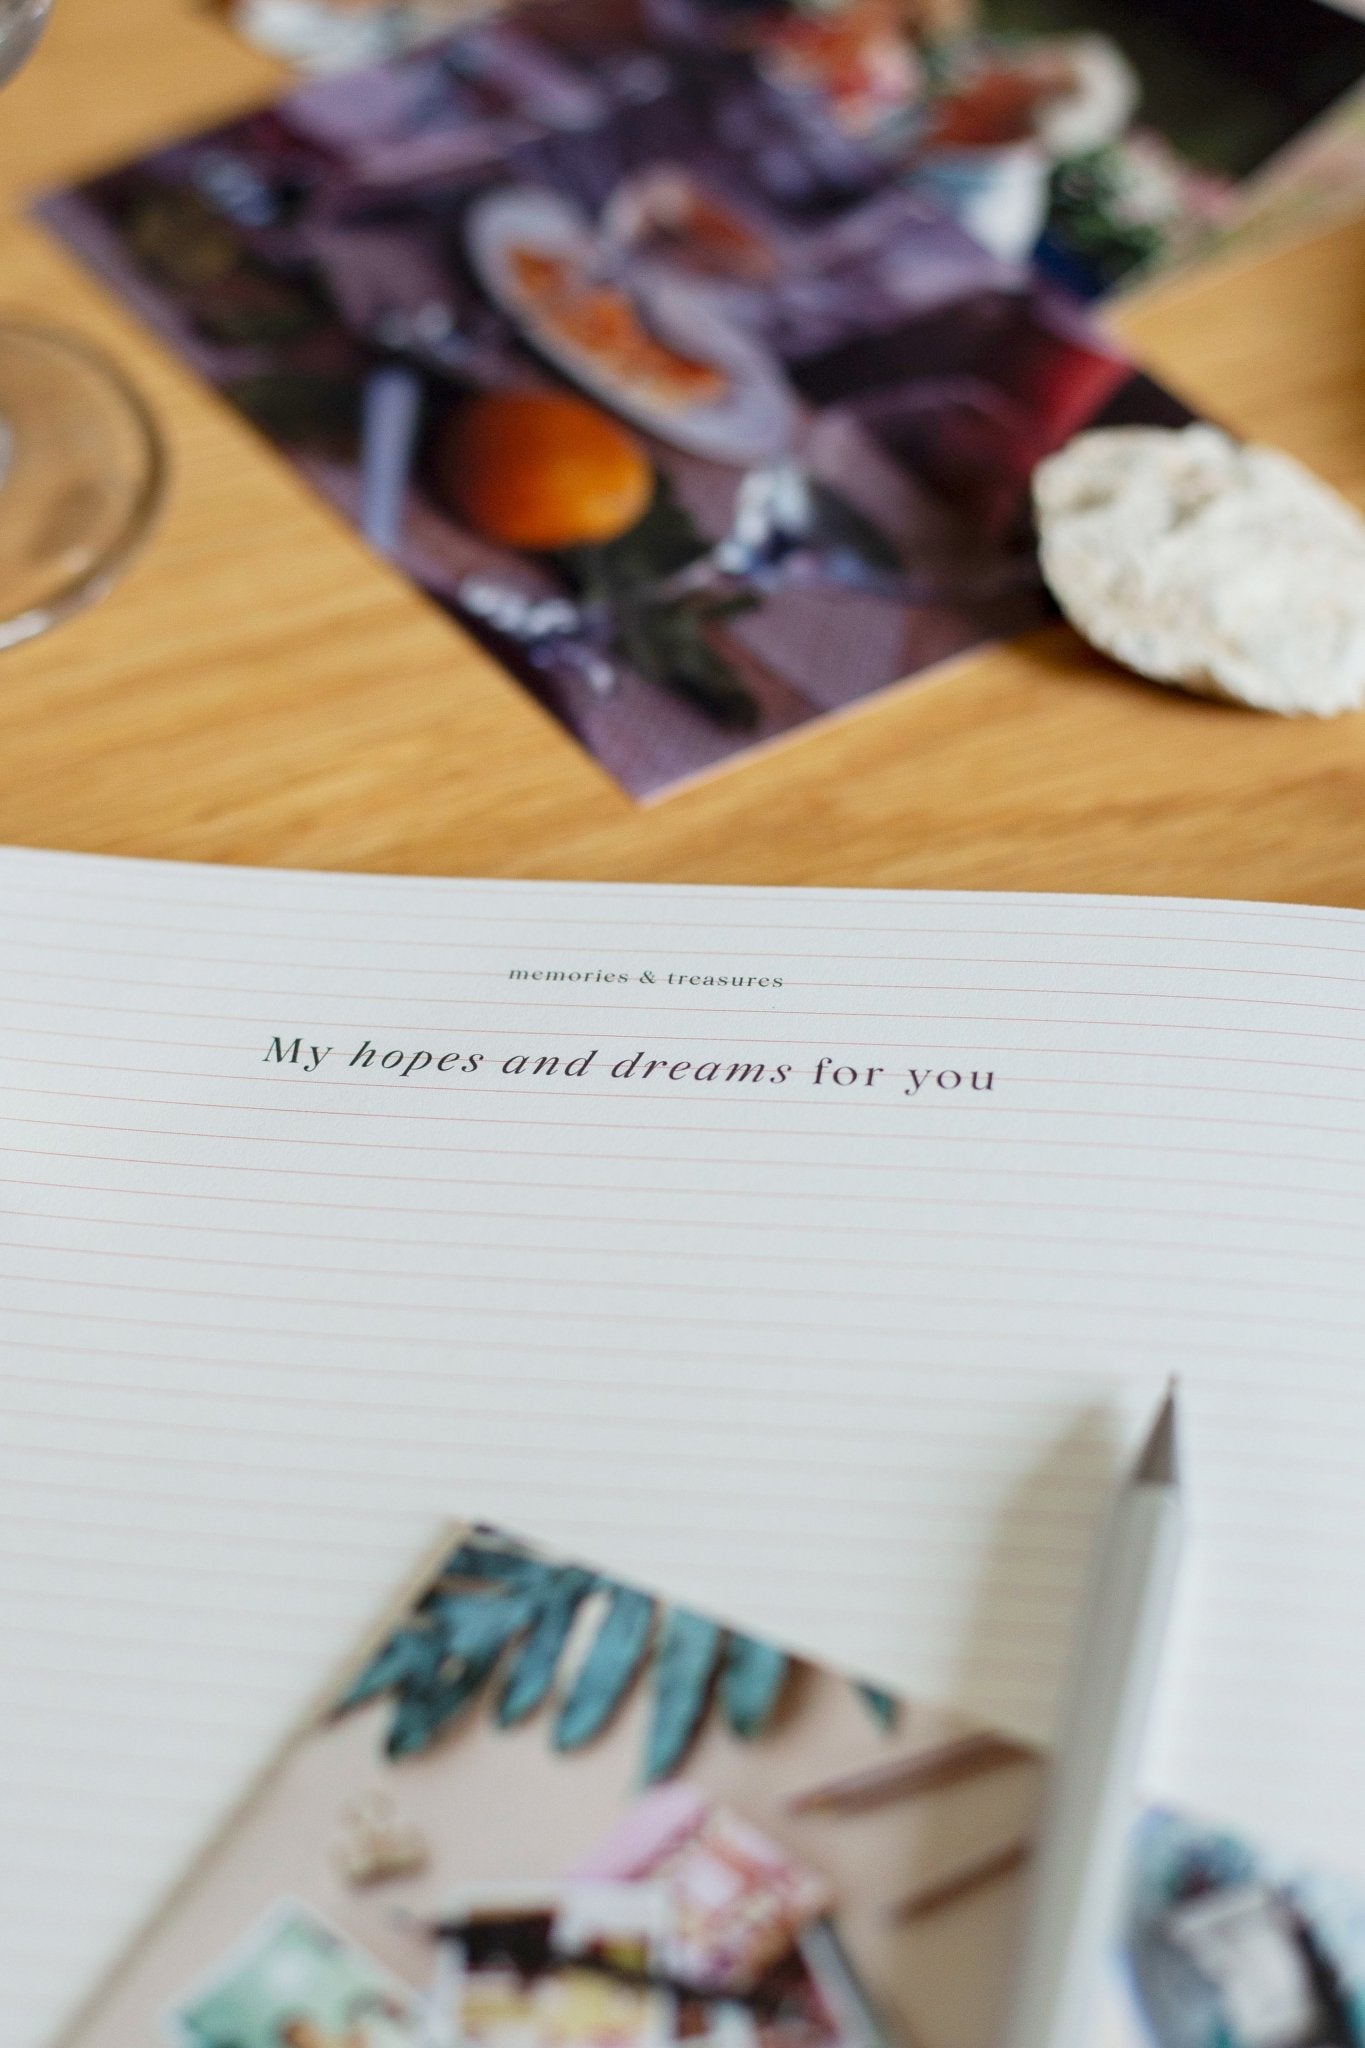 memories & treasures
My hopes and dreams for you